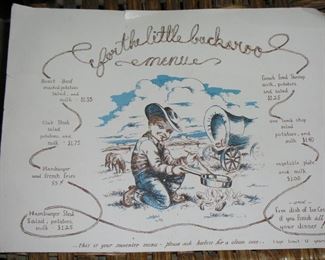 for the little buckaroo
menu
Roast Beef
mashed potatoes
salad, and
milk - $1.35
Club Steak
salad
potatoes
and,
milk - $1.75
Hamburger
and french fries
85¢
Hamburger Steak
Salad, potatoes,
milk - $1.25
French Fried Shrimp
milk, potatoes,
and salad
$1.25
one lamb chop
salad
potatoes, and
milk
vegetable plate
and milk
$1.00
Free dish of Ice Cream
if you finish all
your dinner!
... this is your souvenir menu - please ask hostess for a clean one...